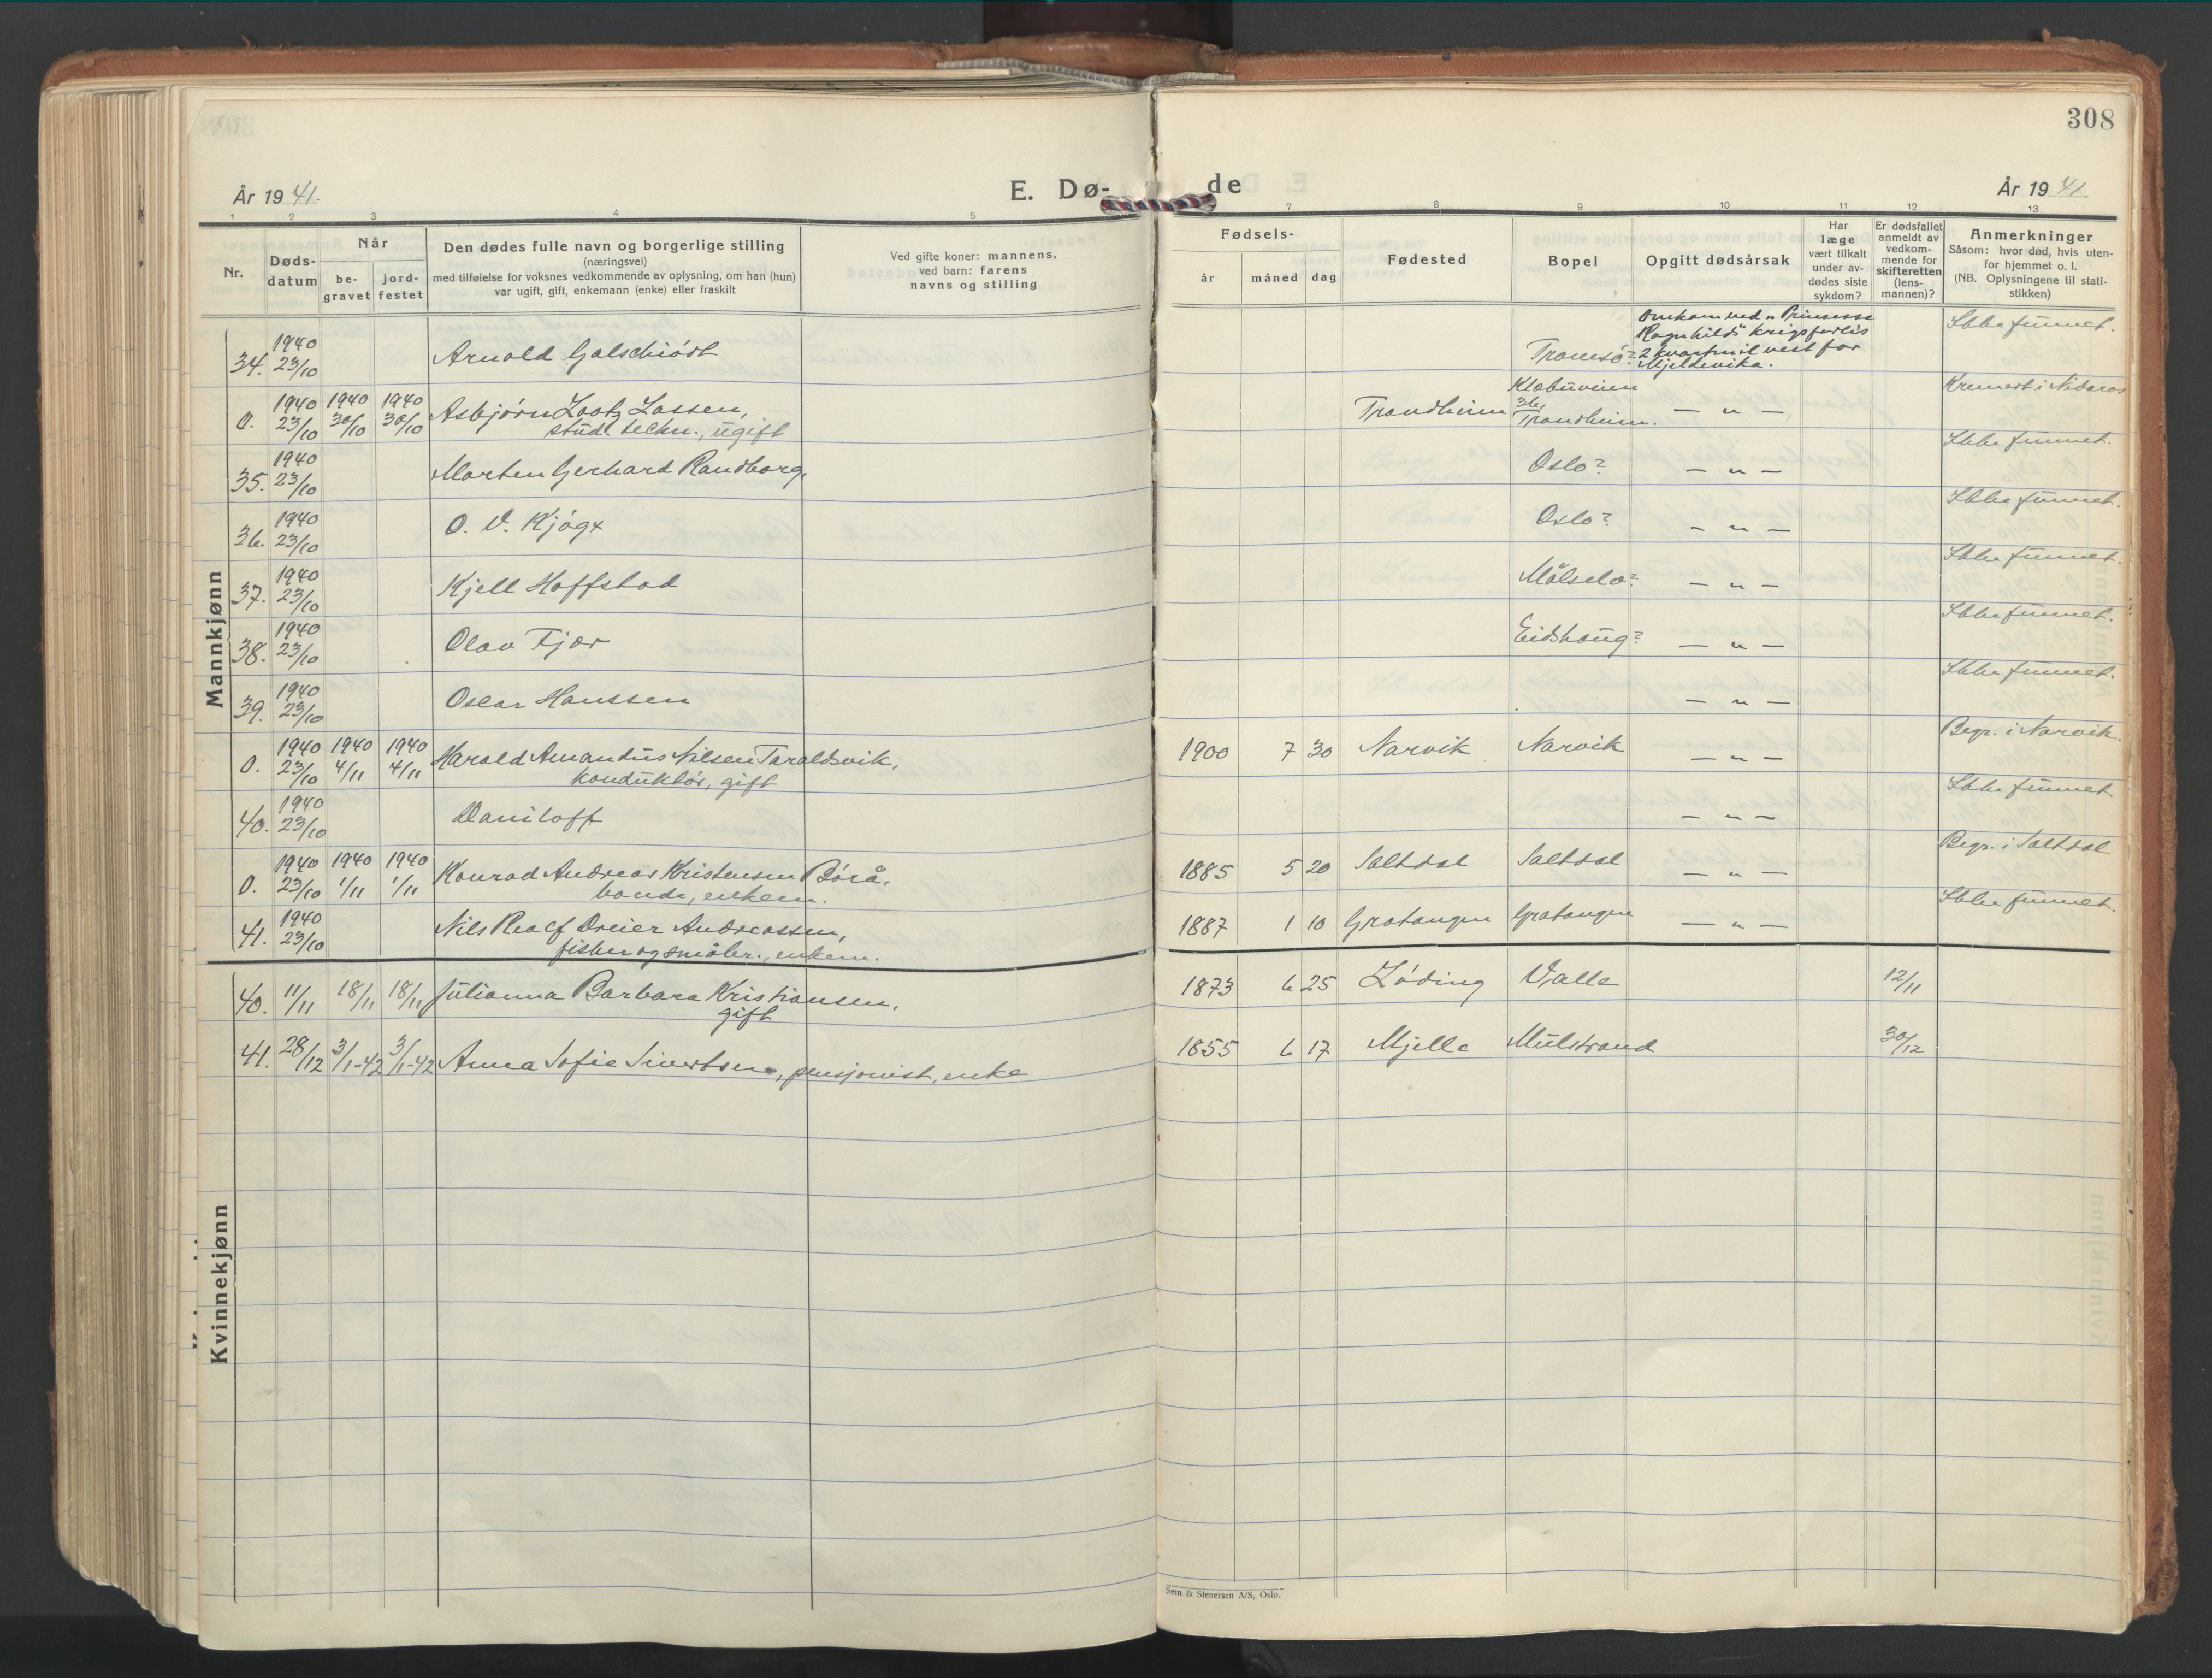 308
År 1941.
E. Dø-
de
År 1941.
1 2 3 4 5 7 8 9 10 11 12 13
Nr.
Døds-
datum
Når
be-
gravet
jord-
festet
Den dødes fulle navn og borgerlige stilling
(næringsvei)
med tilføielse for voksnes vedkommende av oplysning, om han (hun)
var ugift, gift, enkemann (enke) eller fraskilt
Ved gifte koner: mannens,
ved barn: farens
navns og stilling
Fødsels-
år måned dag
Fødested
Bopel
Opgitt dødsårsak
Har
læge
vært tilkalt
under av-
dødes siste
sykdom?
Er dødsfallet
anmeldt av
vedkom-
mende for
skifteretten
(lens-
mannen)?
Anmerkninger
Såsom: hvor død, hvis uten-
for hjemmet o. l.
(NB. Oplysningene til stati-
stikken)
Mannkjønn
34. 1940 23/10 Arnold Galschiödt Tromsö? Omkom ved "Prinsesse
Ragnhilds" krigsforlis
2 kvartmil vest for
Mjeldevika. Ikke funnet.
0. 1940 23/10 1940 30/10 1940 30/10 Asbjørn Lootz Lassen,
stud. techn., ugift Trondheim Klæbuveien
36,
Trondheim. — " — Kremert i Nidaros
35. 1940 23/10 Morten Gerhard Randborg, Oslo? — " — Ikke funnet.
36. 1940 23/10 O. V. Kjög Oslo? — " — Ikke funnet.
37. 1940 23/10 Kjell Hoffstad Målselv? — " — Ikke funnet.
38. 1940 23/10 Olav Fjær Eidshaug? — " — Ikke funnet.
39. 1940 23/10 Oscar Hanssen — " — Ikke funnet.
0. 1940 23/10 1940 4/11 1940 4/11 Harald Amandus Nilsen Taraldsvik,
konduktör, gift 1900 7 30 Narvik Narvik — " — Begr. i Narvik.
40. 1940 23/10 Daniloff — " — Ikke funnet.
0. 1940 23/10 1940 1/11 1940 1/11 Konrad Andreas Kristensen Börå,
bonde, enkem. 1885 5 20 Saltdal Saltdal — " — Begr. i Saltdal
41. 1940 23/10 Nils Dreier Andreassen,
fisker og småbr., enkem. 1887 1 10 Gratangen Gratangen — " — Ikke funnet.
Kvinnekjønn
40. 11/11 18/11 18/11 Julianna Barbara Kristiansen,
gift 1873 6 25 Löding Valle 12/11
41. 28/12 3/1-42 3/1-42 Anna Sofie Sivertsen, pensjonist, enke 1855 6 17 Mjelle Mulstrand 30/12
Sem & Stenersen A/S, Oslo.